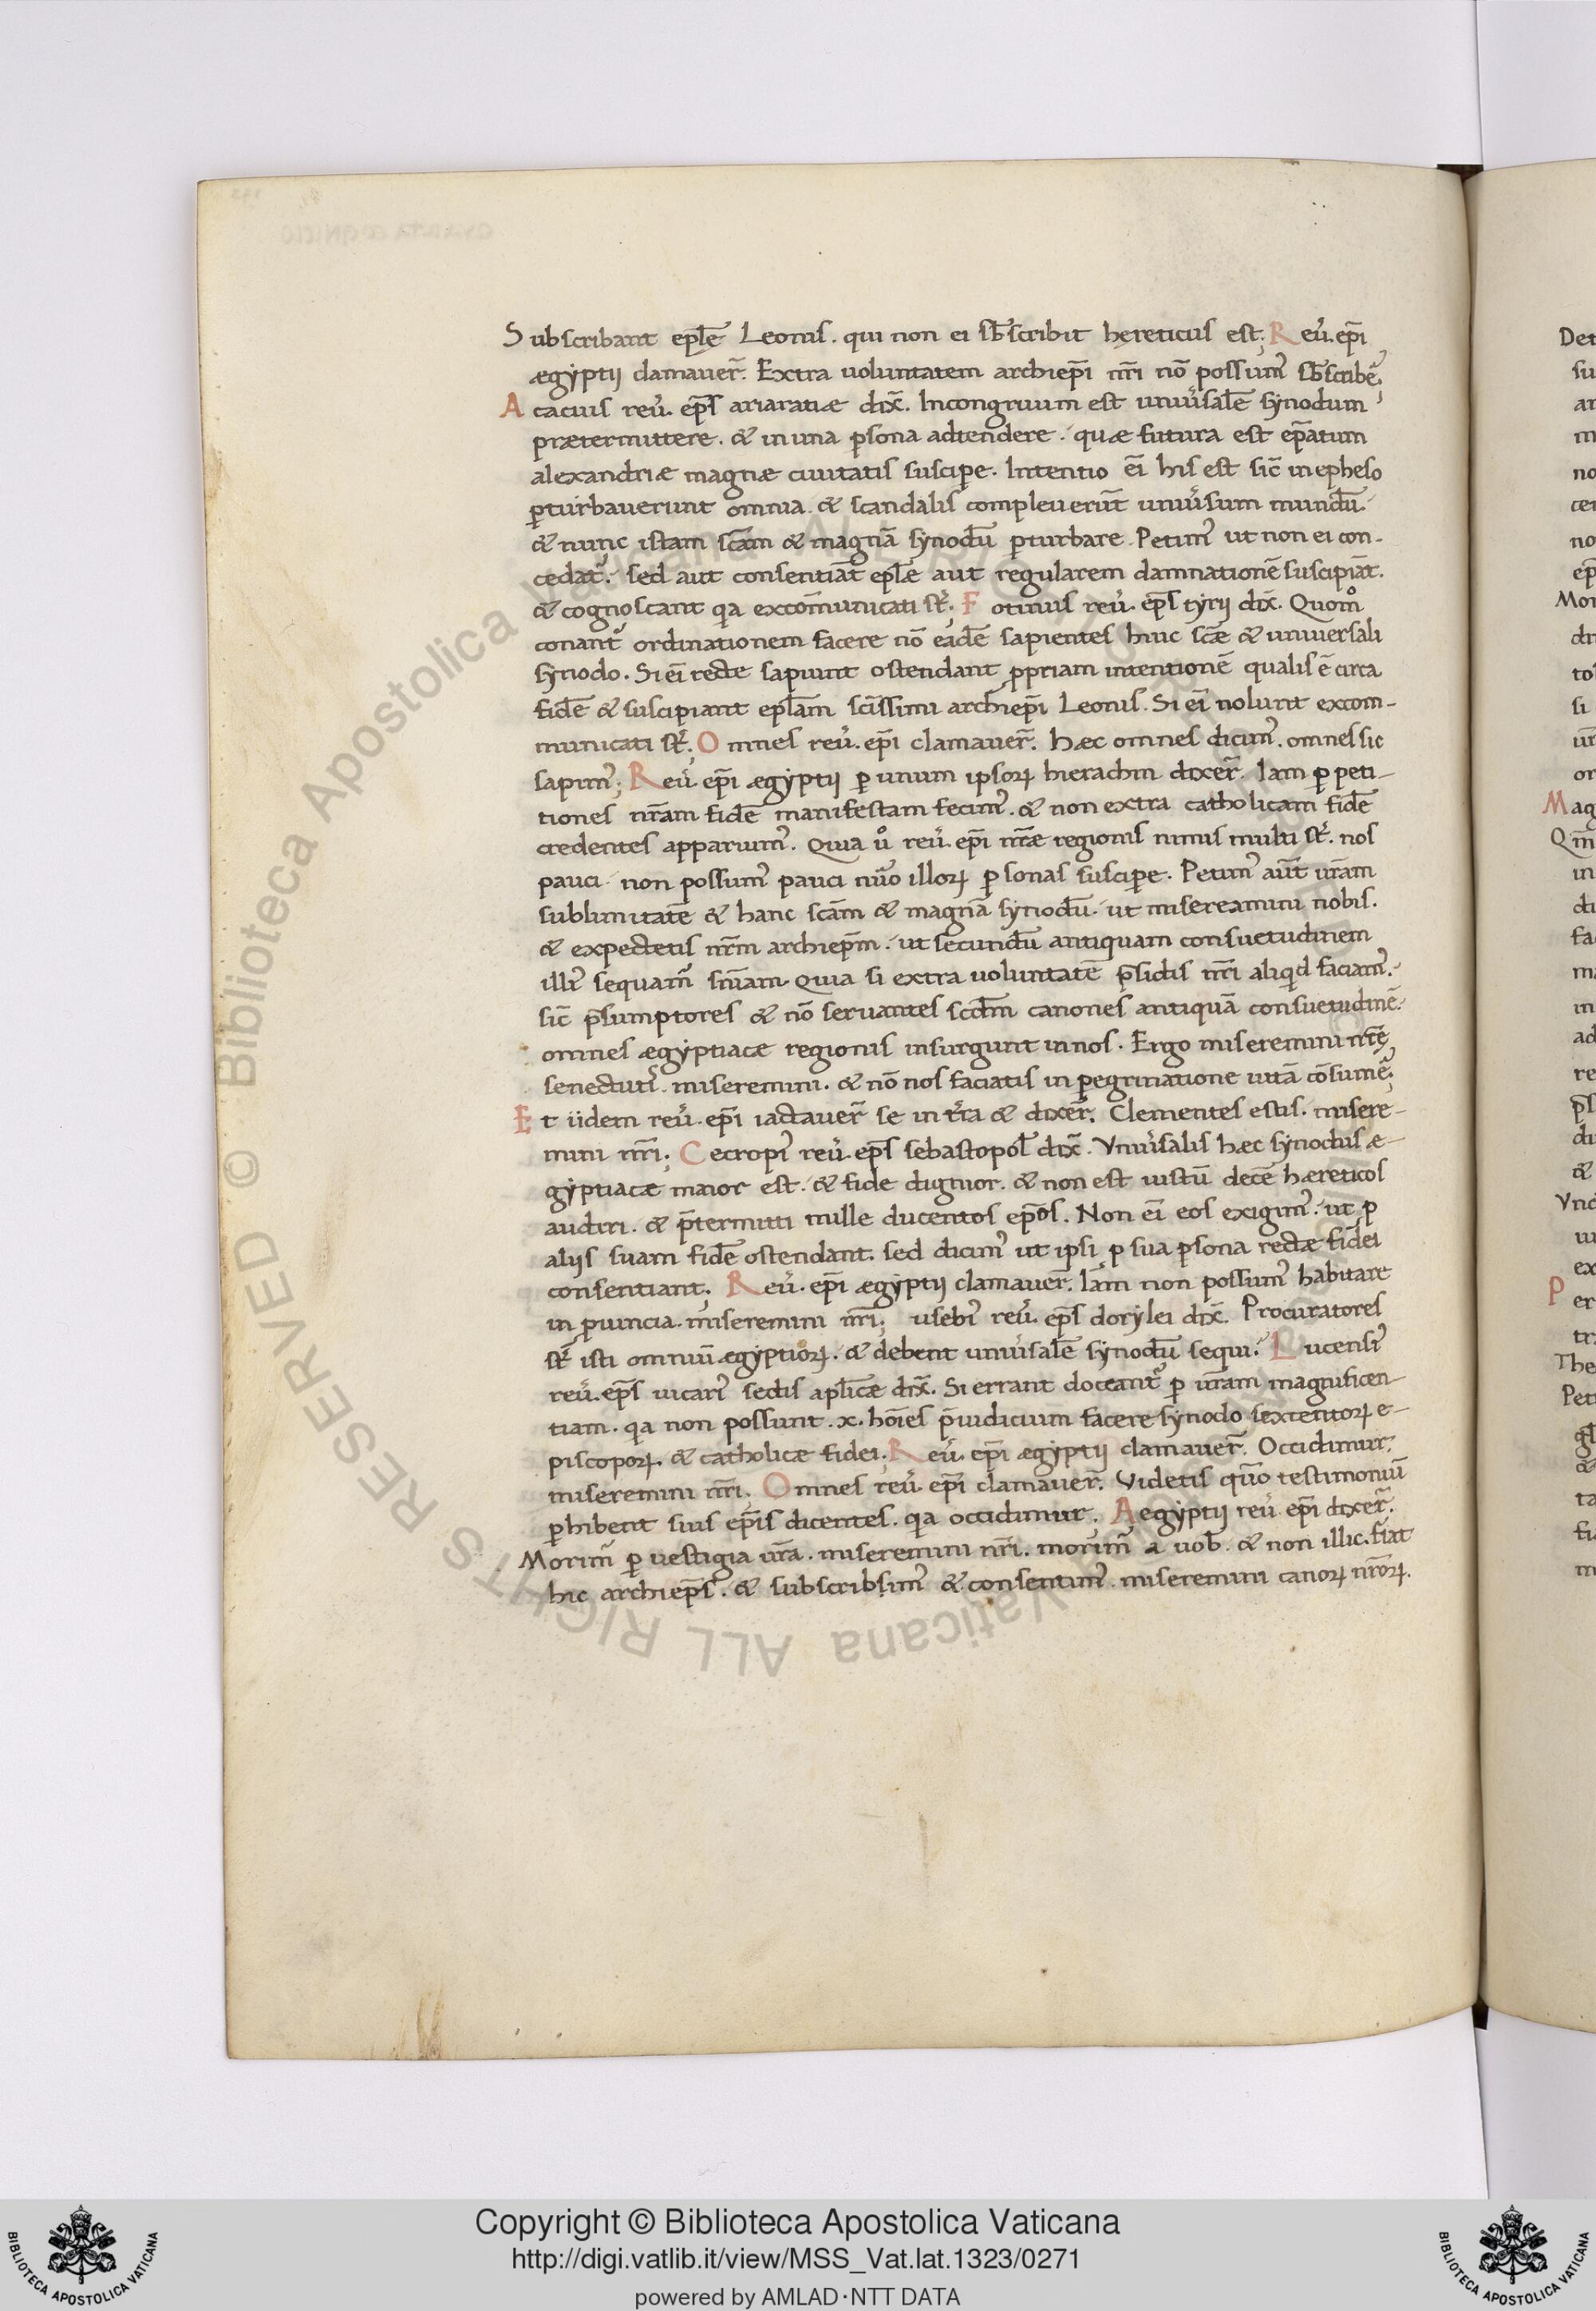 Subscribant eplē Leonis. qui non ei sƀscribit hęreticus est; Reu̓. ep̄i
ægyptij clamauer̄. Extra uoluntatem archiep̄i nr̄i nō possum̓ sƀscribe̓.
Acacius reu̓. ep̄s ariaratiæ dix̄. Incongruum est uniu̓salē synodum
prætermittere. & in una p̱sona adtendere. quæ futura est ep̄atum
alexandriæ magnæ ciuitatis suscip̱e. Intentio ei̅ his est sic̄ in epheso
p̱turbauerunt omnia. & scandalis compleuerūt uniu̓sum mundū.
& nunc istam scām & magnā synodū p̱turbare. Petim̓ ut non ei con-
cedat᷑. sed aut consentiāt eplǣ aut regularem damnationē suscipiāt.
& cognoscant qa excōmunicati sr̄; Fotinus reu̓. ep̄s tyrij dix̄. Quom̊
conant᷑ ordinationem facere nō eadē sapientes huic scǣ & uniuersali
synodo. Si ei̅ recte sapiunt ostendant ꝓpriam intentionē qualis ē circa
fidē & suscipiant eplām scīssimi archiep̄i Leonis. Si ei̅ nolunt excom-
municati sr̄; Omnes reu̓. ep̄i clamauer̄. hæc omnes dicim̓. omnes sic
sapim̓; Reu̓. ep̄i ægyptij p̱ unum ipsoꝝ hierachin dixer̄. Iam p̱ peti-
tiones nr̄am fidē manifestam fecim̓. & non extra catholicam fidē
credentes apparuim̓. Quia ů reu̓. ep̄i nr̄æ regionis nimis multi sr̄. nos
pauci. non possum̓ pauci nūo illoꝝ p̱sonas suscip̱e. Petim̓ aūt ur̄am
sublimitatē & hanc scām & magnā synodū. ut misereamini nobis.
& expectetis nr̄m archiep̄m. ut secundū antiquam consuetudinem
illi̓ sequam̓ snīam. Quia si extra uoluntatē p̄sidis nr̄i aliqd faciam̓.
sic̄ p̄sumptores & nō seruantes scdm̄ canones antiquā consuetudinē.
omnes ægyptiacæ regionis insurgunt in nos. Ergo miseremini nr̄ę
senectuti̓. miseremini. & nō nos faciatis in p̱egrinatione uitā cōsume̓.
Et iidem reu̓. ep̄i iactauer̄ se in tr̄ra & dixer̄. Clementes estis. misere-
mini nr̄i; Cecropi̓ reu̓. ep̄s sebastopol̄ dix̄. Vniu̓salis hæc synodus æ-
gyptiacæ maior est. & fide dignior. & non est iustū decē hæreticos
audiri. & p̄termitti mille ducentos ep̄os. Non ei̅ eos exigim̓. ut p̱
aliis suam fidē ostendant. sed dicim̓ ut ipsi p̱ sua p̱sona rectæ fidei
consentiant. Reu̓. ep̄i ægyptij clamauer̄. Iam non possum̓ habitare
in ꝓuincia. miseremini nr̄i; usebi̓ reu̓. ep̄s dorylei dix̄. Procuratores
sr̄ isti omniū ægyptioꝝ. & debent uniu̓salē synodū sequi; Lucensi̓
reu̓. ep̄s uicari̓ sedis aplicǣ dix̄. Si errant doceant᷑ p̱ ur̄am magnificen-
tiam. qa non possunt .x. hoi̅es p̄iudicium facere synodo sexcentoꝝ e-
piscopoꝝ. & catholicæ fidei; Reu̓. ep̄i ægyptij clamauer̄. Occidimur.
miseremini nr̄i. Omnes reu̓. ep̄i clamauer̄. Videtis qu̅o testimoniū
p̱hibent suis ep̄is dicentes. qa occidimur. Aegyptij reu̓. ep̄i dixer̄.
Morim̓ p̱ uestigia ur̄a. miseremini nr̄i. morim̓ a uob̄. & non illic. fiat
hic archiep̄s. & subscribsim̓ & consentim̓. miseremini canoꝝ nr̄oꝝ.
Copyright © Biblioteca Apostolica Vaticana
http://digi.vatlib.it/view/MSS_Vat.lat.1323/0271
powered by AMLAD·NTT DATA